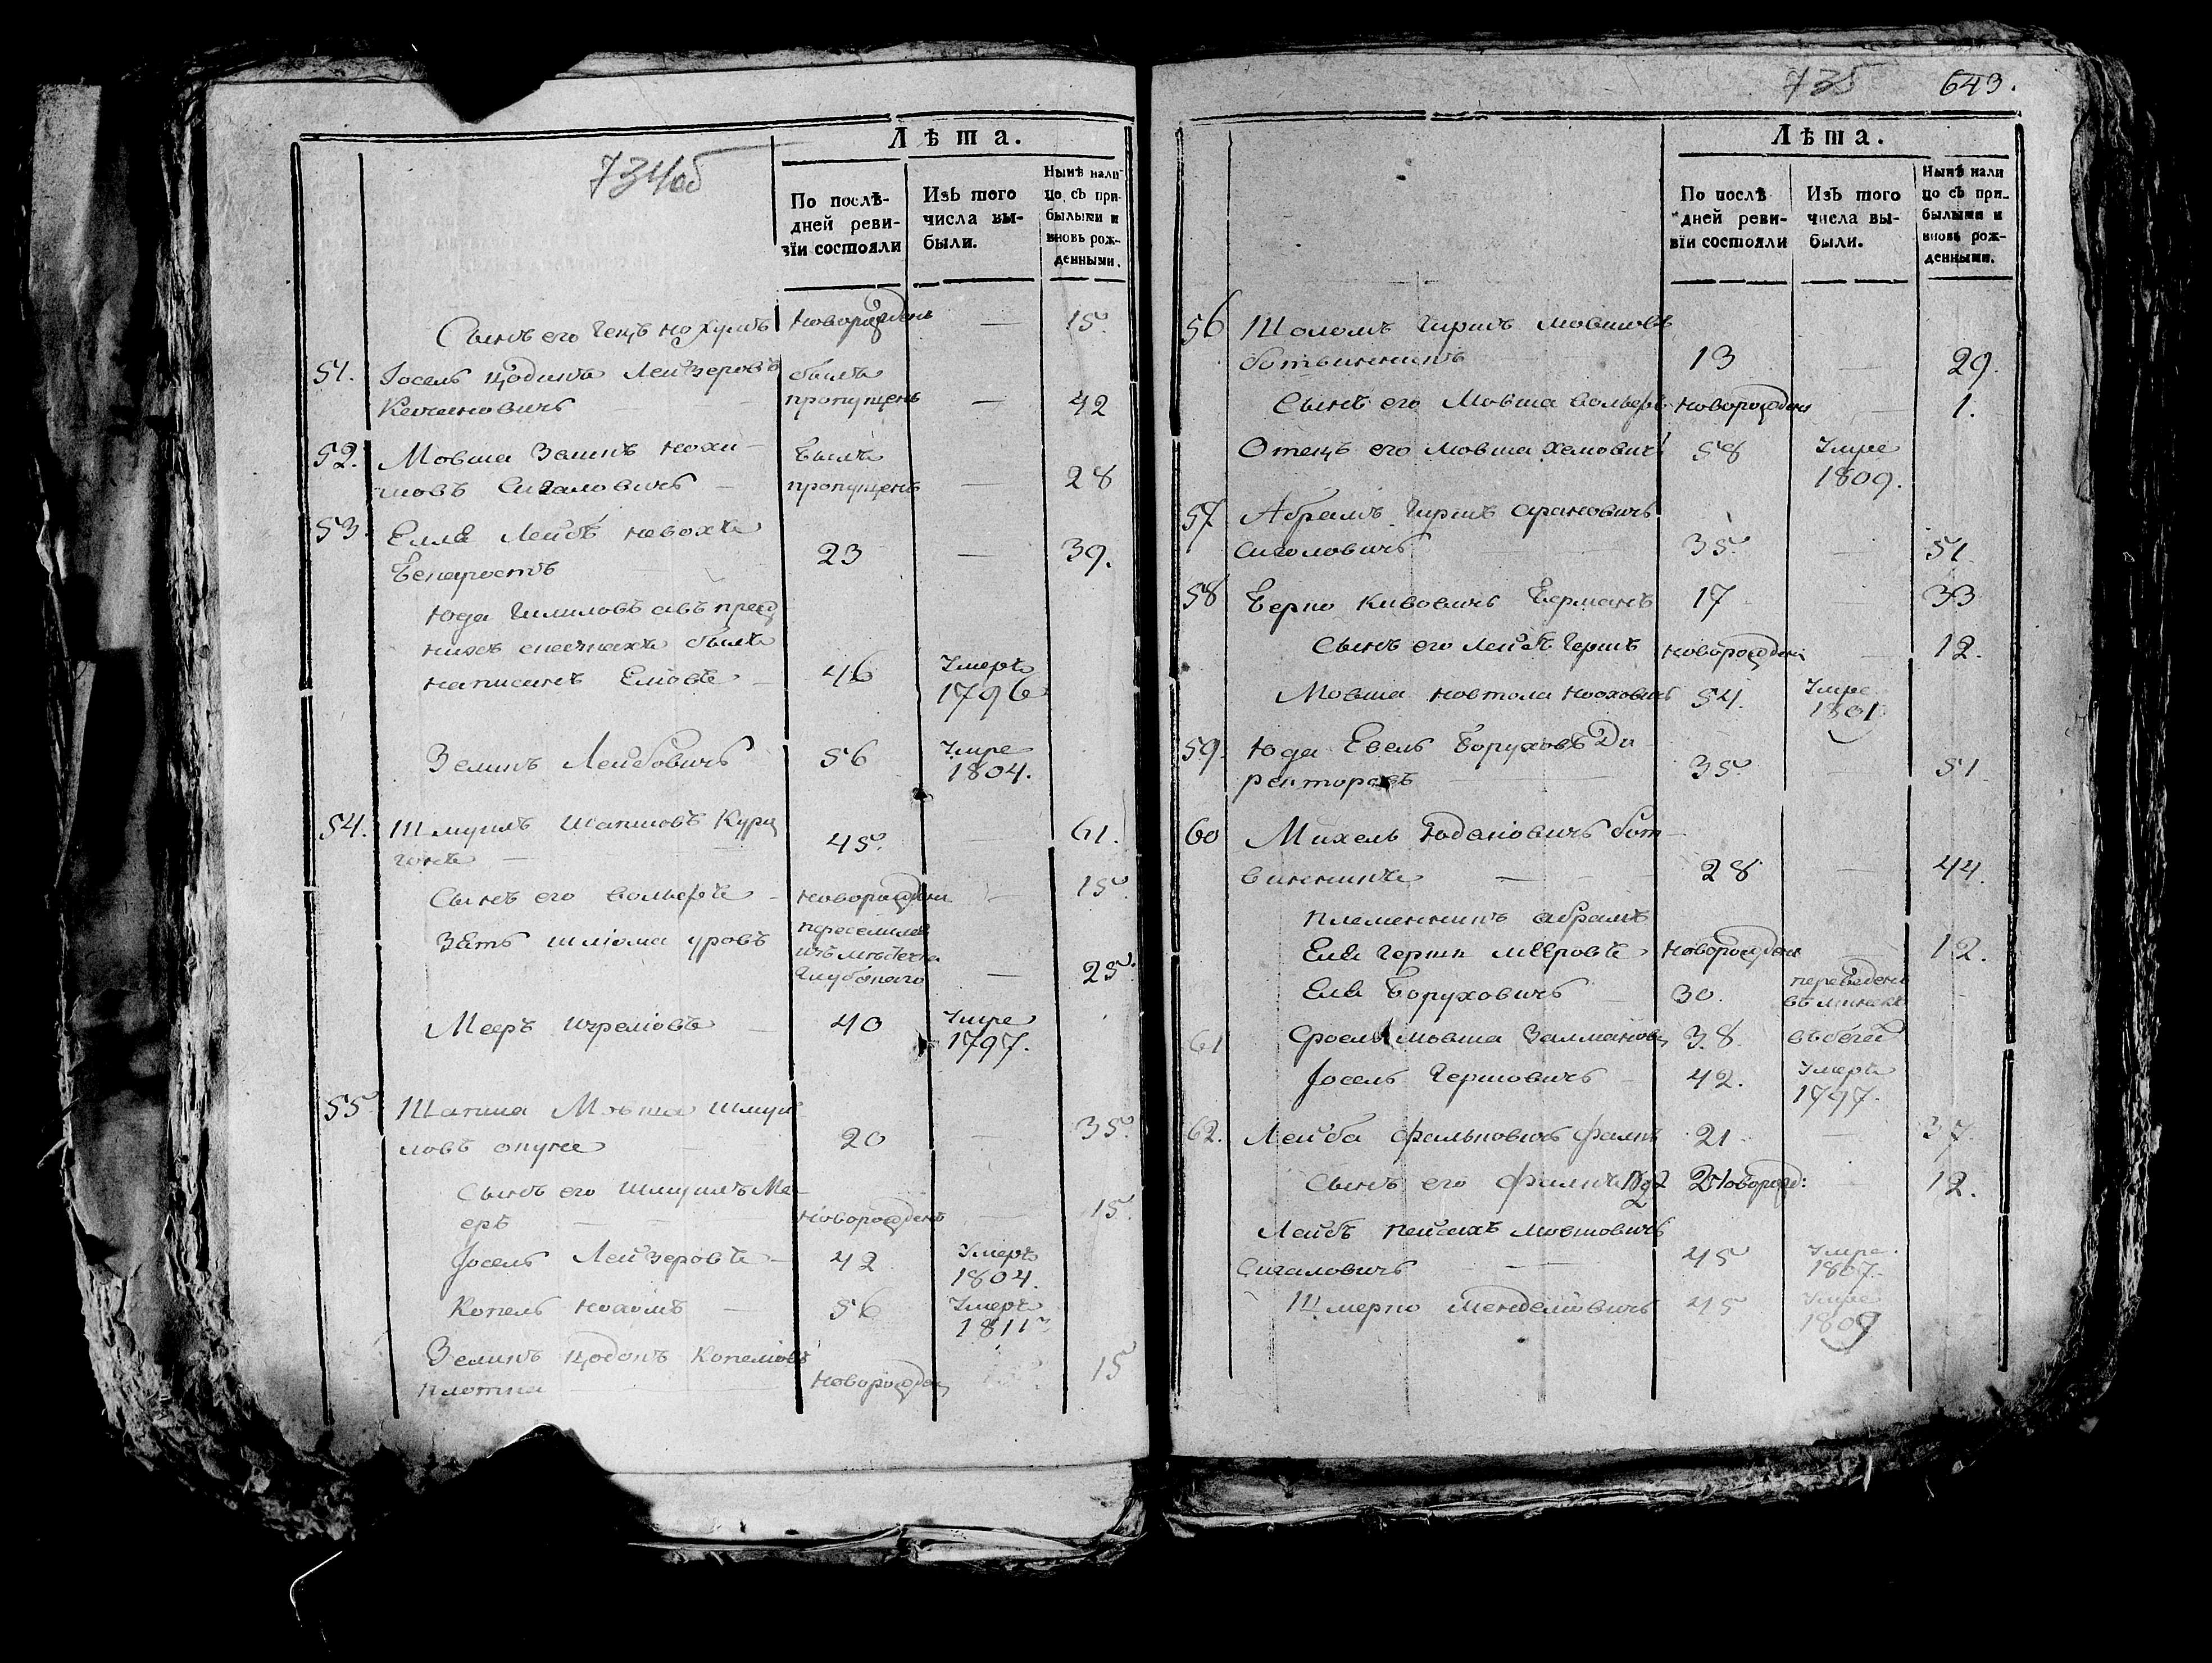 734об
Лѣта.
По послѣ-
дней реви-
зїи состояли
Изъ того
числа вы-
были.
Нынѣ нали-
цо съ при-
былыми и
вновь рож-
денными.
Сынъ его Генцъ Нохумъ новорожденъ — 15.
51. Іосель Цодикъ Лейзеровъ былъ
пропущенъ — 42
52. Мовша Зеликъ Нохи-
мовъ Сигаловичъ былъ
пропущенъ — 28
53. Елля Лейбъ
23 — 39.
Юда Гилиловъ а въ пред
нихъ сказкахъ былъ
написанъ 46 Умеръ
1796
Зеликъ Лейбовичъ 56 Умре
1804.
54. Шмуилъ Шапшовъ Курц
45. — 61.
Сынъ его Вольфъ новорожденъ — 15
Зять Шліома Уровъ переселился
изъ мѣстечка
Глубокаго — 25.
Мееръ 40 Умре
1797.
55 Шапша Мовша Шмуй
ловъ 20 — 35.
Сынъ его Шмуилъ Ме-
еръ новорожденъ — 15.
Іосель Лейзеровъ 42 Умеръ
1804.
Копель Нохимъ — 56 Умеръ
1811
Зеликъ Цодокъ Копеліовъ
Плоткна новорожден 15
735
643.
Лѣта.
По послѣ
дней реви-
зїи состояли
Изъ того
числа вы-
были.
Нынѣ нали
цо съ при-
былыми и
вновь рож-
денными.
56 Шоломъ Гиршъ Мовшовъ
Ботвинникъ 13 — 29.
Сынъ его Мовша Вольфъ новорожденъ — 1.
Отецъ его Мовша Хемовичъ 58 Умре
1809.
57 Абрамъ Гиршъ Ароновичъ
Сигаловичъ 35. — 51
58 Берко Кивовичъ Берманъ 17 — 33
Сынъ его Лейбъ Гершъ новорожденъ — 12.
Мовша Новтола Нохovичъ 54. Умре
1801
59. Юда Евель Боруховъ Ди-
ректоровъ 35. — 51
60 Михель Юдаліовичъ Бот-
винникъ — 28 — 44.
Племенникъ Абрамъ
Еля Гершъ Мееровъ новорожденъ — 12.
Еля Боруховичъ 30. переведенъ
въ Минскъ
61 Сроель Мовша Залманов 38. въ бѣгах
Іосель Гершовичъ — 42. Умеръ
1797.
62. Лейба Фальковичъ Фалкъ 21 — 37.
Сынъ его Фалкъ новорожд: 12.
Лейбъ Пейсахъ Мовшовичъ
Сигаловичъ — 45 Умре.
1807.
Шмерко Менделіовичъ 45 Умре
1809